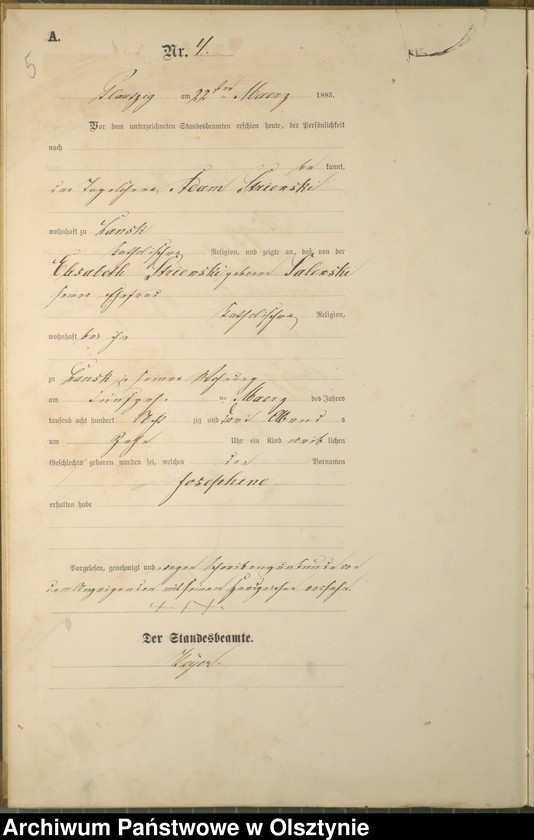 A.
5
Nr. 4.
am 22ten Maerz 1885.
Vor dem unterzeichneten Standesbeamten erschien heute, der Persönlichkeit
nach
be kannt,
der Adam Strierski
wohnhaft zu Lansk
katholischer Religion, und zeigte an, daß von der
Elisabeth Strierski geborene Salewski
seiner Ehefrau
katholischer Religion,
wohnhaft bei ihm
zu Lansk in seiner Wohnung
am fünfzehn ten Maerz des Jahres
tausend acht hundert acht zig und Abend s
um zehn Uhr ein Kind weib lichen
Geschlechts geboren worden sei, welches den Vornamen
Josephine
erhalten habe
Vorgelesen, genehmigt und wegen Schreibensunkunde von
dem Anzeigenden mit seinem Handzeichen versehen.
+++
Der Standesbeamte.
Archiwum Państwowe w Olsztynie